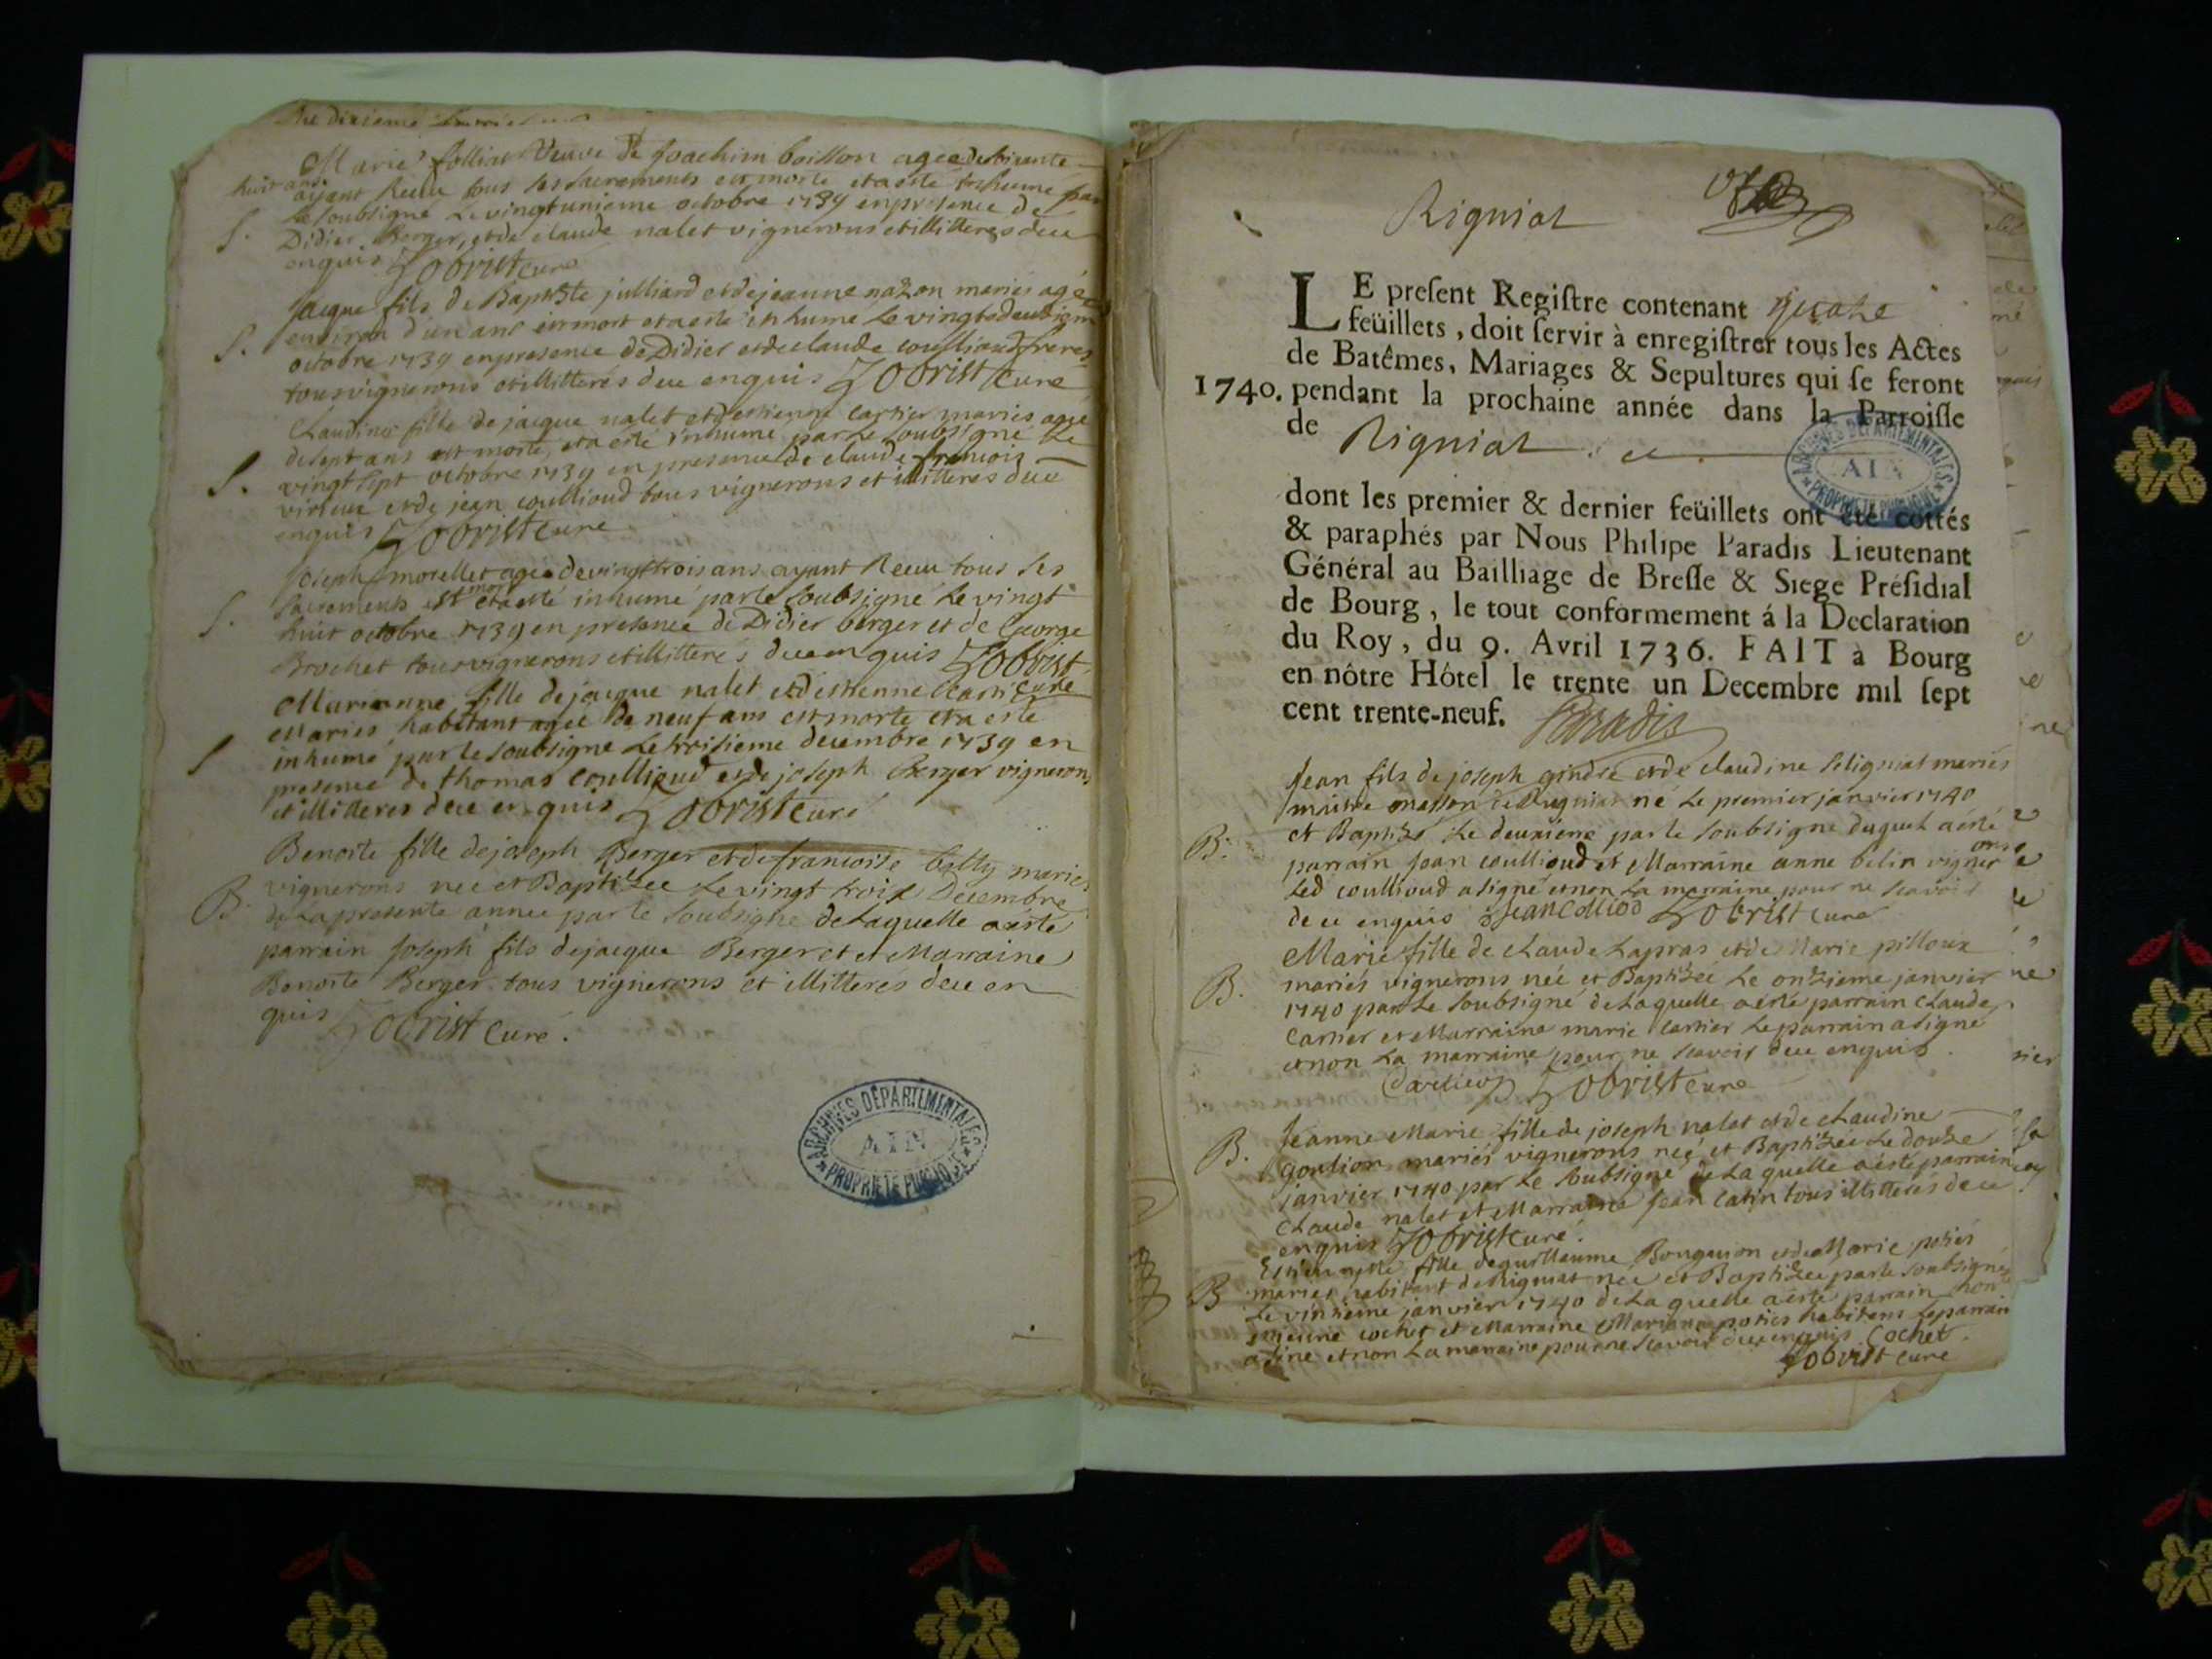 Marie folliat Veuve de Joachim boisson agée de soixante
huit ans
ayant Receu tous ses sacrements est morte et a esté inhumé par
le soubsigné le vingtunieme octobre 1739 en presence de
S.
Didier Berger, et de claude nalet vignerons et illitteres de ce
enquis Zobrist curé
Jacque fils de Baptiste julliard et de jeanne nazon mariés agé
environ d'un ans est mort et a esté inhumé le vingtedeuxiem
S.
octobre 1739 en presence de Didier et de claude coullioud freres
tous vignerons et illitterés de ce enquis Zobrist curé
Claudine fille de jacque nalet et d'estienne cartier mariés agé
de sept ans est morte, et a esté inhumé par le soubsigné le
S.
vingt sept octobre 1739 en presence de claude francois
virieux et de jean coullioud tous vignerons et illitteres de ce
enquis Zobrist curé
Joseph morellet agée de vingt trois ans ayant Receu tous ses
sacrements est mort et a esté inhumé par le soubsigné le vingt
S.
huit octobre 1739 en presence de Didier berger et de George
Brochet tous vignerons et illitterés de ce enquis Zobrist
curé
Marianne fille de jacque nalet et d'estienne cartier
mariés habitant agée de neuf ans est morte et a esté
S
inhumé par le soubsigné le troisieme decembre 1739 en
presence de thomas coullioud et de joseph Berger vignerons
et illitteres de ce enquis Zobrist curé
Benoite fille de joseph Berger et de francoise balty mariés
B.
vignerons née et Baptizée le vingt trois Decembre
de la presente année par le soubsigné de laquelle a esté
parrain Joseph fils de jacque Bergeret et Marraine
Benoite Berger tous vignerons et illitterés de ce en
quis Zobrist curé.
ARCHIVES DÉPARTEMENTALES
AIN
PROPRIÉTÉ PUBLIQUE
Rigniat
LE present Registre contenant
feüillets, doit servir à enregistrer tous les Actes
de Batêmes, Mariages & Sepultures qui se feront
1740. pendant la prochaine année dans la Parroisse
de Rigniat
ARCHIVES DÉPARTEMENTALES
AIN
PROPRIÉTÉ PUBLIQUE
dont les premier & dernier feüillets ont été cottés
& paraphés par Nous Philipe Paradis Lieutenant
Général au Bailliage de Bresse & Siege Présidial
de Bourg, le tout conformement á la Declaration
du Roy, du 9. Avril 1736. FAIT à Bourg
en nôtre Hôtel le trente un Decembre mil sept
cent trente-neuf. Paradis
Jean fils de joseph gindre et de claudine soligniat mariés
maitre masson de Rigniat né le premier janvier 1740
B.
et Baptizé le deuxieme par le soubsigné duquel a esté
parrain Jean coullioud et Marraine anne belin vignerons
led coullioud a signé et non la marraine pour ne scavoir
de ce enquis Jean Colliod Zobrist curé
Marie fille de claude Lapras et de Marie pilloux
B.
mariés vignerons née et Baptizée le onzieme janvier
1740 par le soubsigné de laquelle a esté parrain claude
cartier et Marraine marie cartier le parrain a signé
et non la marraine pour ne scavoir de ce enquis.
Zobrist curé
B.
Jeanne Marie fille de joseph nalet et de claudine
goulion mariés vignerons née et Baptizée le douze
janvier 1740 par le soubsigné de la quelle a esté parrain
claude nalet et Marraine Jean catin tous illitterés de ce
enquis Zobrist curé.
fille de guillaume Bongavion et de Marie
B
mariés habitant de Rigniat née et Baptizée par le soubsigné
le vintieme janvier 1740 de la quelle a esté parrain
cochet et Marraine Mariane habitens le parrain
a siné et non la marraine pour ne scavoir de ce enquis. Cochet.
Zobrist curé